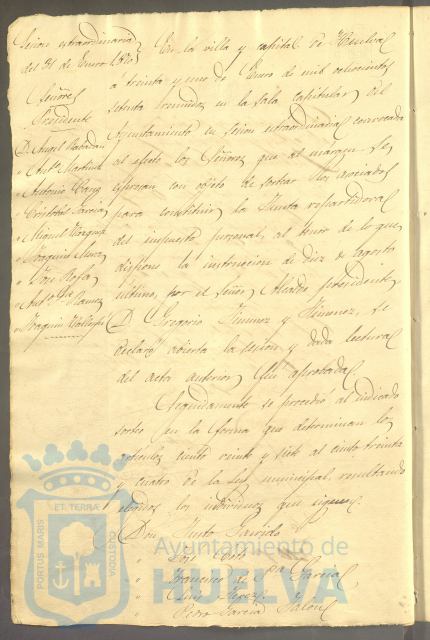 Sesion extraordinaria
del 31 de Enero 1870
Señores
Presidente
D. Angel Rabadan
" Antº Martinez
" Antonio
" Cristobal Garcia
" Miguel
" Joaquin
" José
" Antº
" Joaquin
En la villa y capital de Huelva
á treinta y uno de Enero de mil ochocientos
setenta reunidos en la sala capitular del
Ayuntamiento en sesion extraordinaria convocada
al efecto los Señores que al margen se
espresan con objeto de sortear los asociados
para constituir la Junta repartidora
del impuesto personal, al tenor de lo que
dispone la instruccion de diez de agosto
último, por el señor Alcalde presidente
D. Gregorio Jimenez y Jimenez, se
declaró abierta la sesion y dada lectura
del acta anterior fué aprobada.
Seguidamente se procedió al indicado
sorteo en la forma que determinan los
artículos ciento veinte y siete al ciento treinta
y cuatro de la ley municipal, resultando
elegidos los individuos que siguen.
Don Justo Garrido
" José
" Francisco de Pª Garcia
" Luis Perez
" Pedro Garcia
PORTUS MARIS ET TERRÆ CUSTODIA
Ayuntamiento de
HUELVA